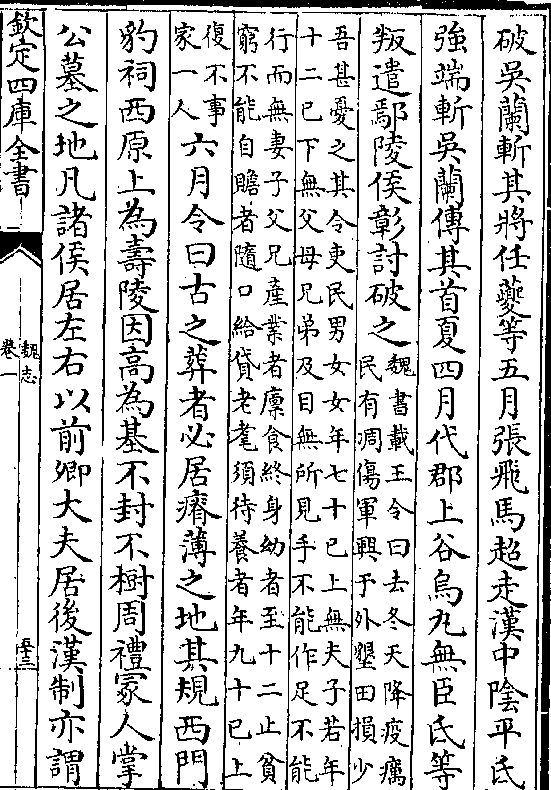 破吳蘭斬其將任夔等五月張飛馬超走漢中隂平氐
強端斬吳蘭傳其首夏四月代郡上谷烏丸無臣氐等
叛遣鄢陵侯彰討破之
魏書載王令曰去冬天降疫癘
民有凋傷軍興于外墾田損少
吾甚憂之其令吏民男女女年七十已上無夫子若年
十二已下無父母兄弟及目無所見手不能作足不能
行而無妻子父兄產業者廩食終身幼者至十二止貧
窮不能自贍者隨口給貸老耄須待養者年九十已上
復不事
家一人
六月令曰古之葬者必居瘠薄之地其規西門
豹祠西原上為壽陵因高為基不封不樹周禮冢人掌
公墓之地凡諸侯居左右以前卿大夫居後漢制亦謂
欽定四庫全書
魏志
卷一